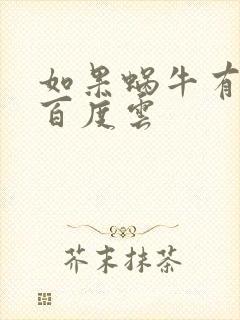 如果蜗牛有
百度雲
芥末抹茶